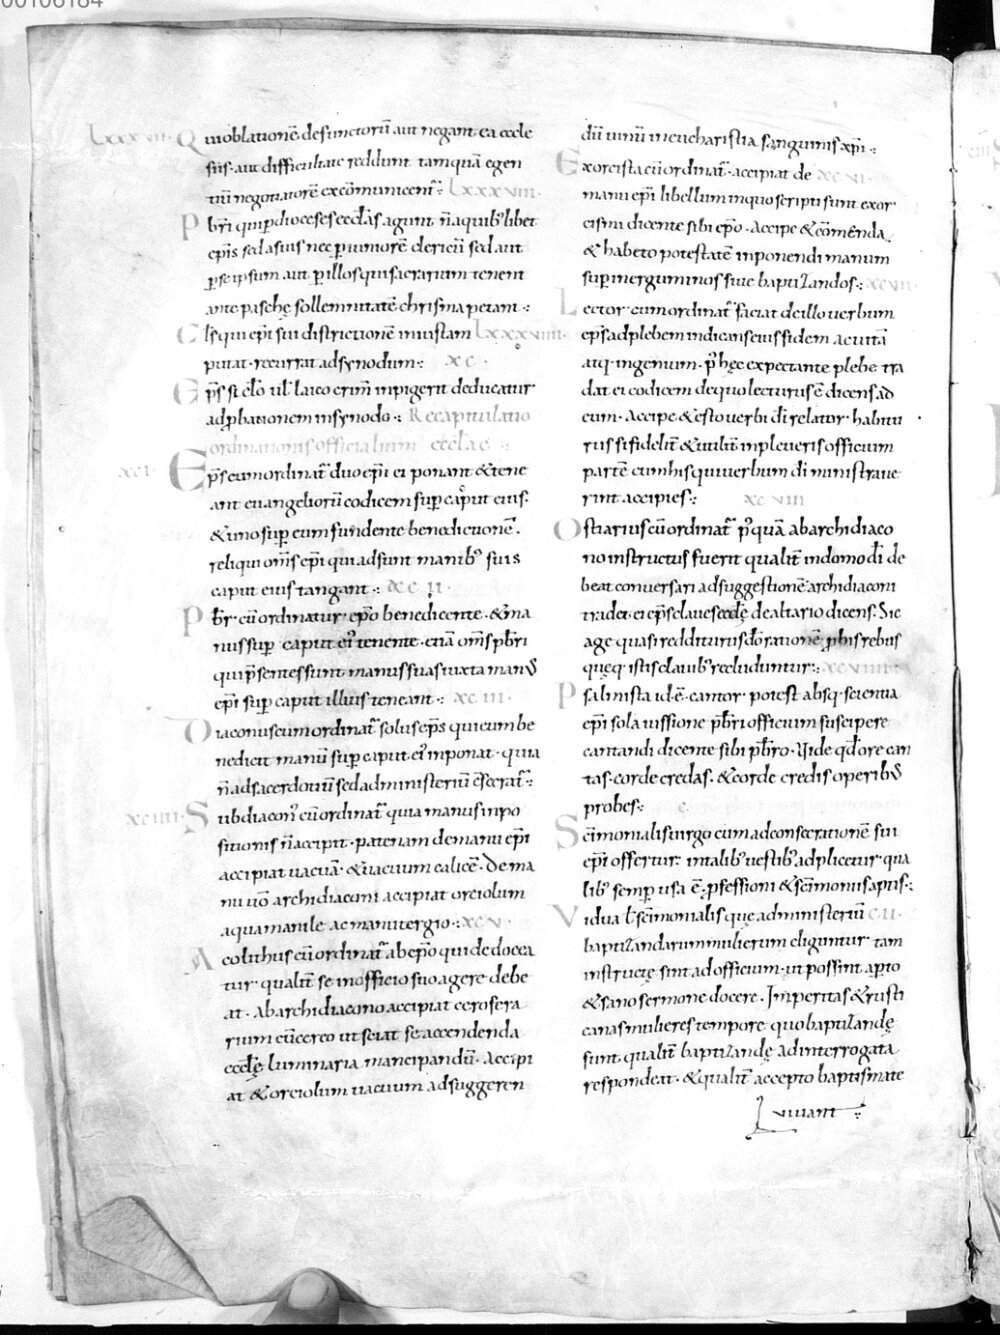 00106184
lxxxvii. Qui oblationē defunctorū aut negant ea eccle
siis. aut difficultate reddunt tamquā egen
tiū negotiatorē excōmunicent̄ : lxxxviii.
Pb̄ri qui p̄ dioceses eccl̄as agunt. n̄ a quib; libet
ep̄is sed a suis nec p̄ iuniorē clericū sed aut
p̄ se ipsum aut p̄ illos qui sacrarium tenent
ante paschę sollemnitatē chrisma petant :
Cl̄s qui ep̄i sui districtionē iniustam lxxxviiii.
putat. recurrat ad synodum : xc.
Ep̄s si cl̄o ul̄ laico crim̄ inpigerit deducatur
ad p̄bationem in synodo : Recapitulatio
ordinationis officialium eccl̄ae :
xci. Ep̄s cum ordinat̄ duo ep̄i ei ponant & tene
ant euangeliorū codicem sup̄ caput eius.
& uno sup̄ eum fundente benedictionē.
reliqui om̄s ep̄i qui adsunt manib; suis
caput eius tangant : xcii.
Pb̄r cū ordinatur. ep̄o benedicente. & ma
nus sup̄ caput ei' tenente. etiā om̄s pb̄ri
qui p̄sentes sunt manus suas iuxta manū
ep̄i sup̄ caput illius teneant : xciii.
Diaconus cum ordinat̄ solus ep̄s qui eum be
nedicit manū sup̄ caput ei' inponat. quia
n̄ ad sacerdotiū sed ad ministeriū c̄secrat̄ :
xciiii. Subdiacon' cū ordinat̄ quia manus inpo
sitionis n̄ accipit. patenam de manu ep̄i
accipiat uacuā. & uacuum calicē. De ma
nu uō archidiaconi accipiat orciolum
aquamanile ac manutergio : xcv.
Acolithus cū ordinat̄ ab ep̄o quidē docea
tur. qualit̄ se in officio suo agere debe
at. Ab archidiacono accipiat cerofera
rium cū cereo ut sciat se accendenda
eccl̄ę luminaria mancipandū. Accipi
at & orciolum uacuum ad suggeren
dū uinū in eucharistia sanguinis xp̄i :
Exorcista cū ordinat̄. accipiat de xcvi.
manu ep̄i libellum in quo scripti sunt exor
cismi dicente sibi ep̄o. Accipe & cōmenda
& habeto potestatē inponendi manum
sup̄ inerguminos siue baptizandos : xcvii.
Lector cum ordinat̄ faciat de illo uerbum
ep̄s ad plebem indicans eius fidem ac uitā
atq; ingenium. p̄' hęc expectante plebe tra
dat ei codicem de quo lecturus ē dicens ad
eum. Accipe & esto uerbi d̄i relator. habitu
rus si fidelit̄ & utilit̄ inpleueris officium
partē cum his qui uerbum d̄i ministraue
rint accipies : xcviii
Ostiarius cū ordinat̄ p̄'quā ab archidiaco
no instructus fuerit qualit̄ in domo d̄i de
beat conuersari ad suggestionē archidiaconi
tradet ei ep̄s claues eccl̄ę de altario dicens. Sic
age quasi redditurus d̄o rationē p̄ his rebus
quęq; istis clauib; recluduntur : xcviiii.
Psalmista id ē cantor. potest absq; scientia
ep̄i sola iussione pb̄ri officium suscipere
cantandi dicente sibi pb̄ro. Vide qd̄ ore can
tas. corde credas. & corde credis operib;
probes : c.
Scīmonialis uirgo cum ad consecrationē sui
ep̄i offertur. in talib; uestib; adplicetur. qua
lib; semp̄ usa ē. p̄fessioni & scīmoni aptis :
Vidua ł scīmonialis que ad ministeriū c.ii.
baptizandarum mulierum eliguntur. tam
instructę sint ad officium. ut possint apto
& sano sermone docere. Imperitas & rusti
canas mulieres tempore quo baptizandę
sunt. qualit̄ baptizandę ad interrogata
respondeat. & qualit̄ accepto baptismate
uiuant :